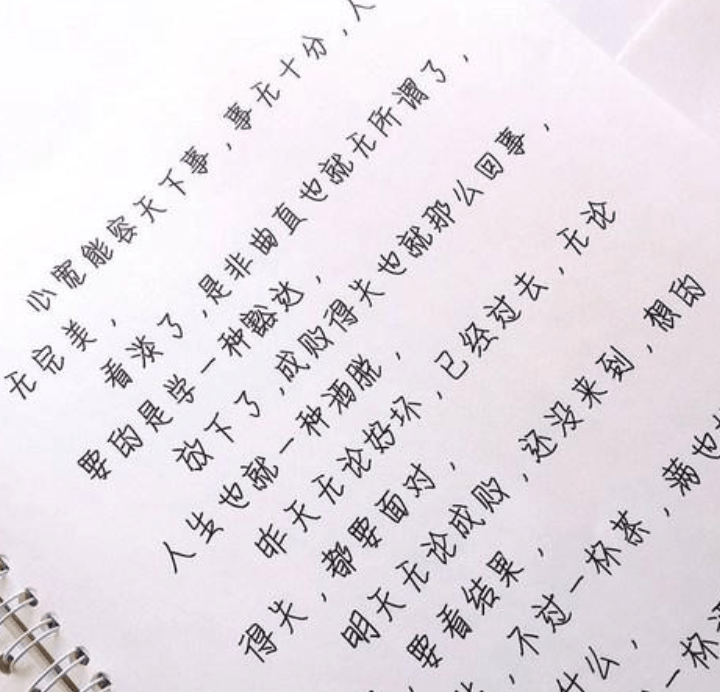 心宽能容天下事，事无十分，人
无完美，
看淡了，是非曲直也就无所谓了，
要的是学一种豁达，
放下了，成败得失也就那么回事，
人生也就一种洒脱，
昨天无论好坏，已经过去，无论
得失，都要面对，
明天无论成败，还没来到，想的
要看结果，
不过一杯茶，满也
什么，
一杯